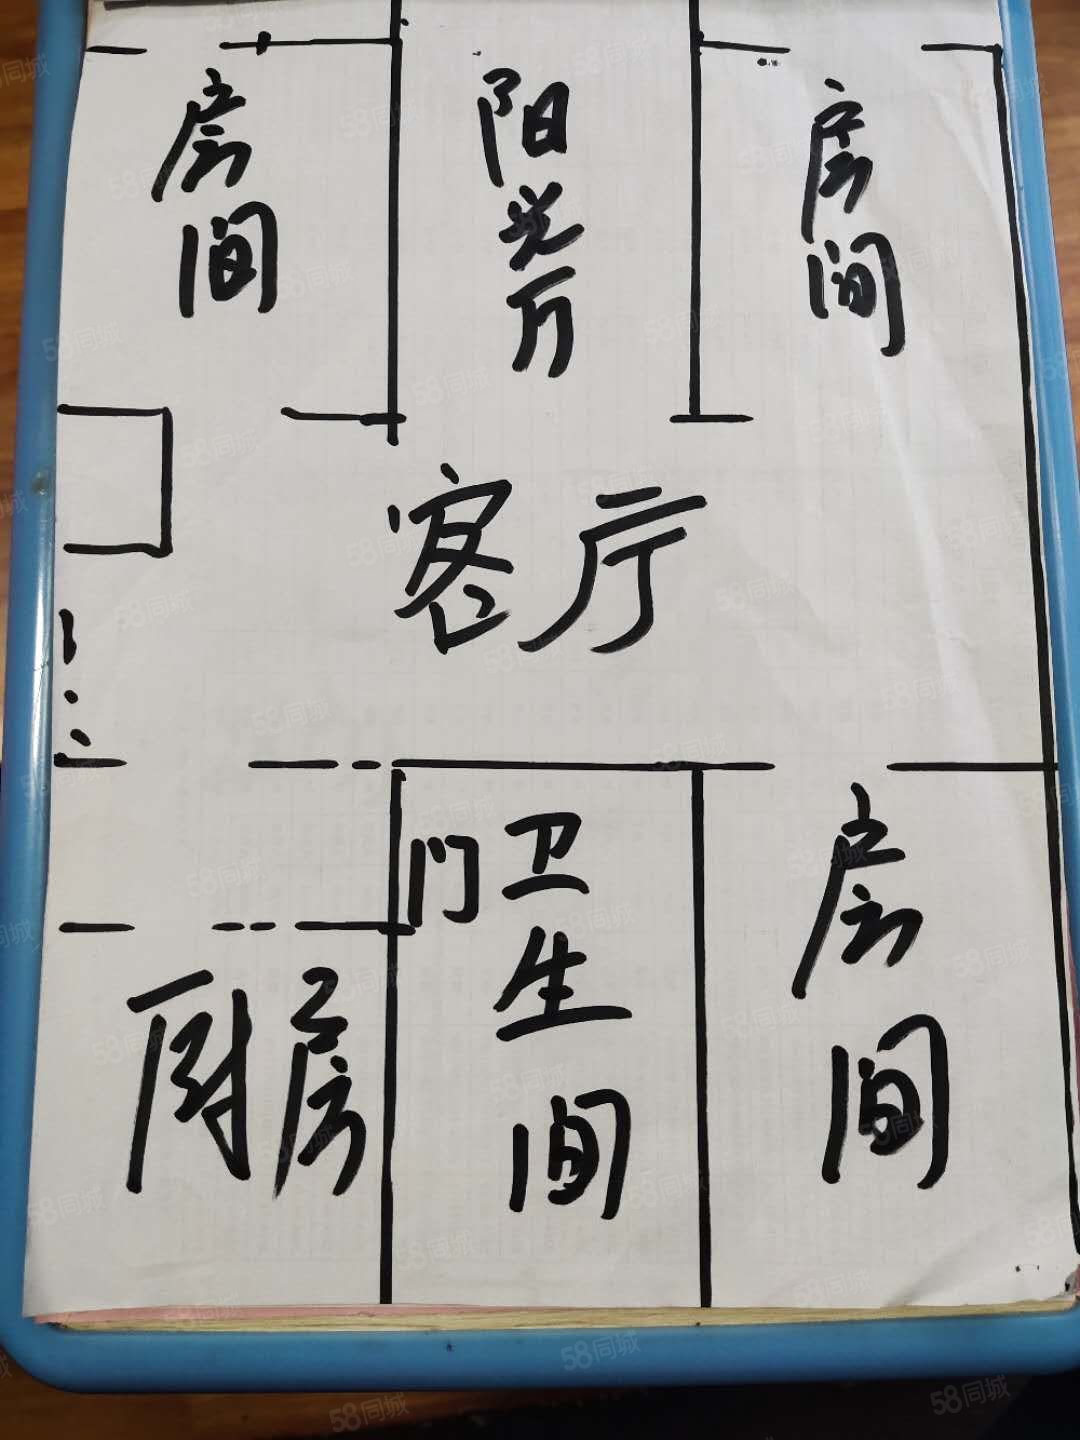 房间
阳光厅
房间
客厅
门
卫生间
房间
厨房
58同城